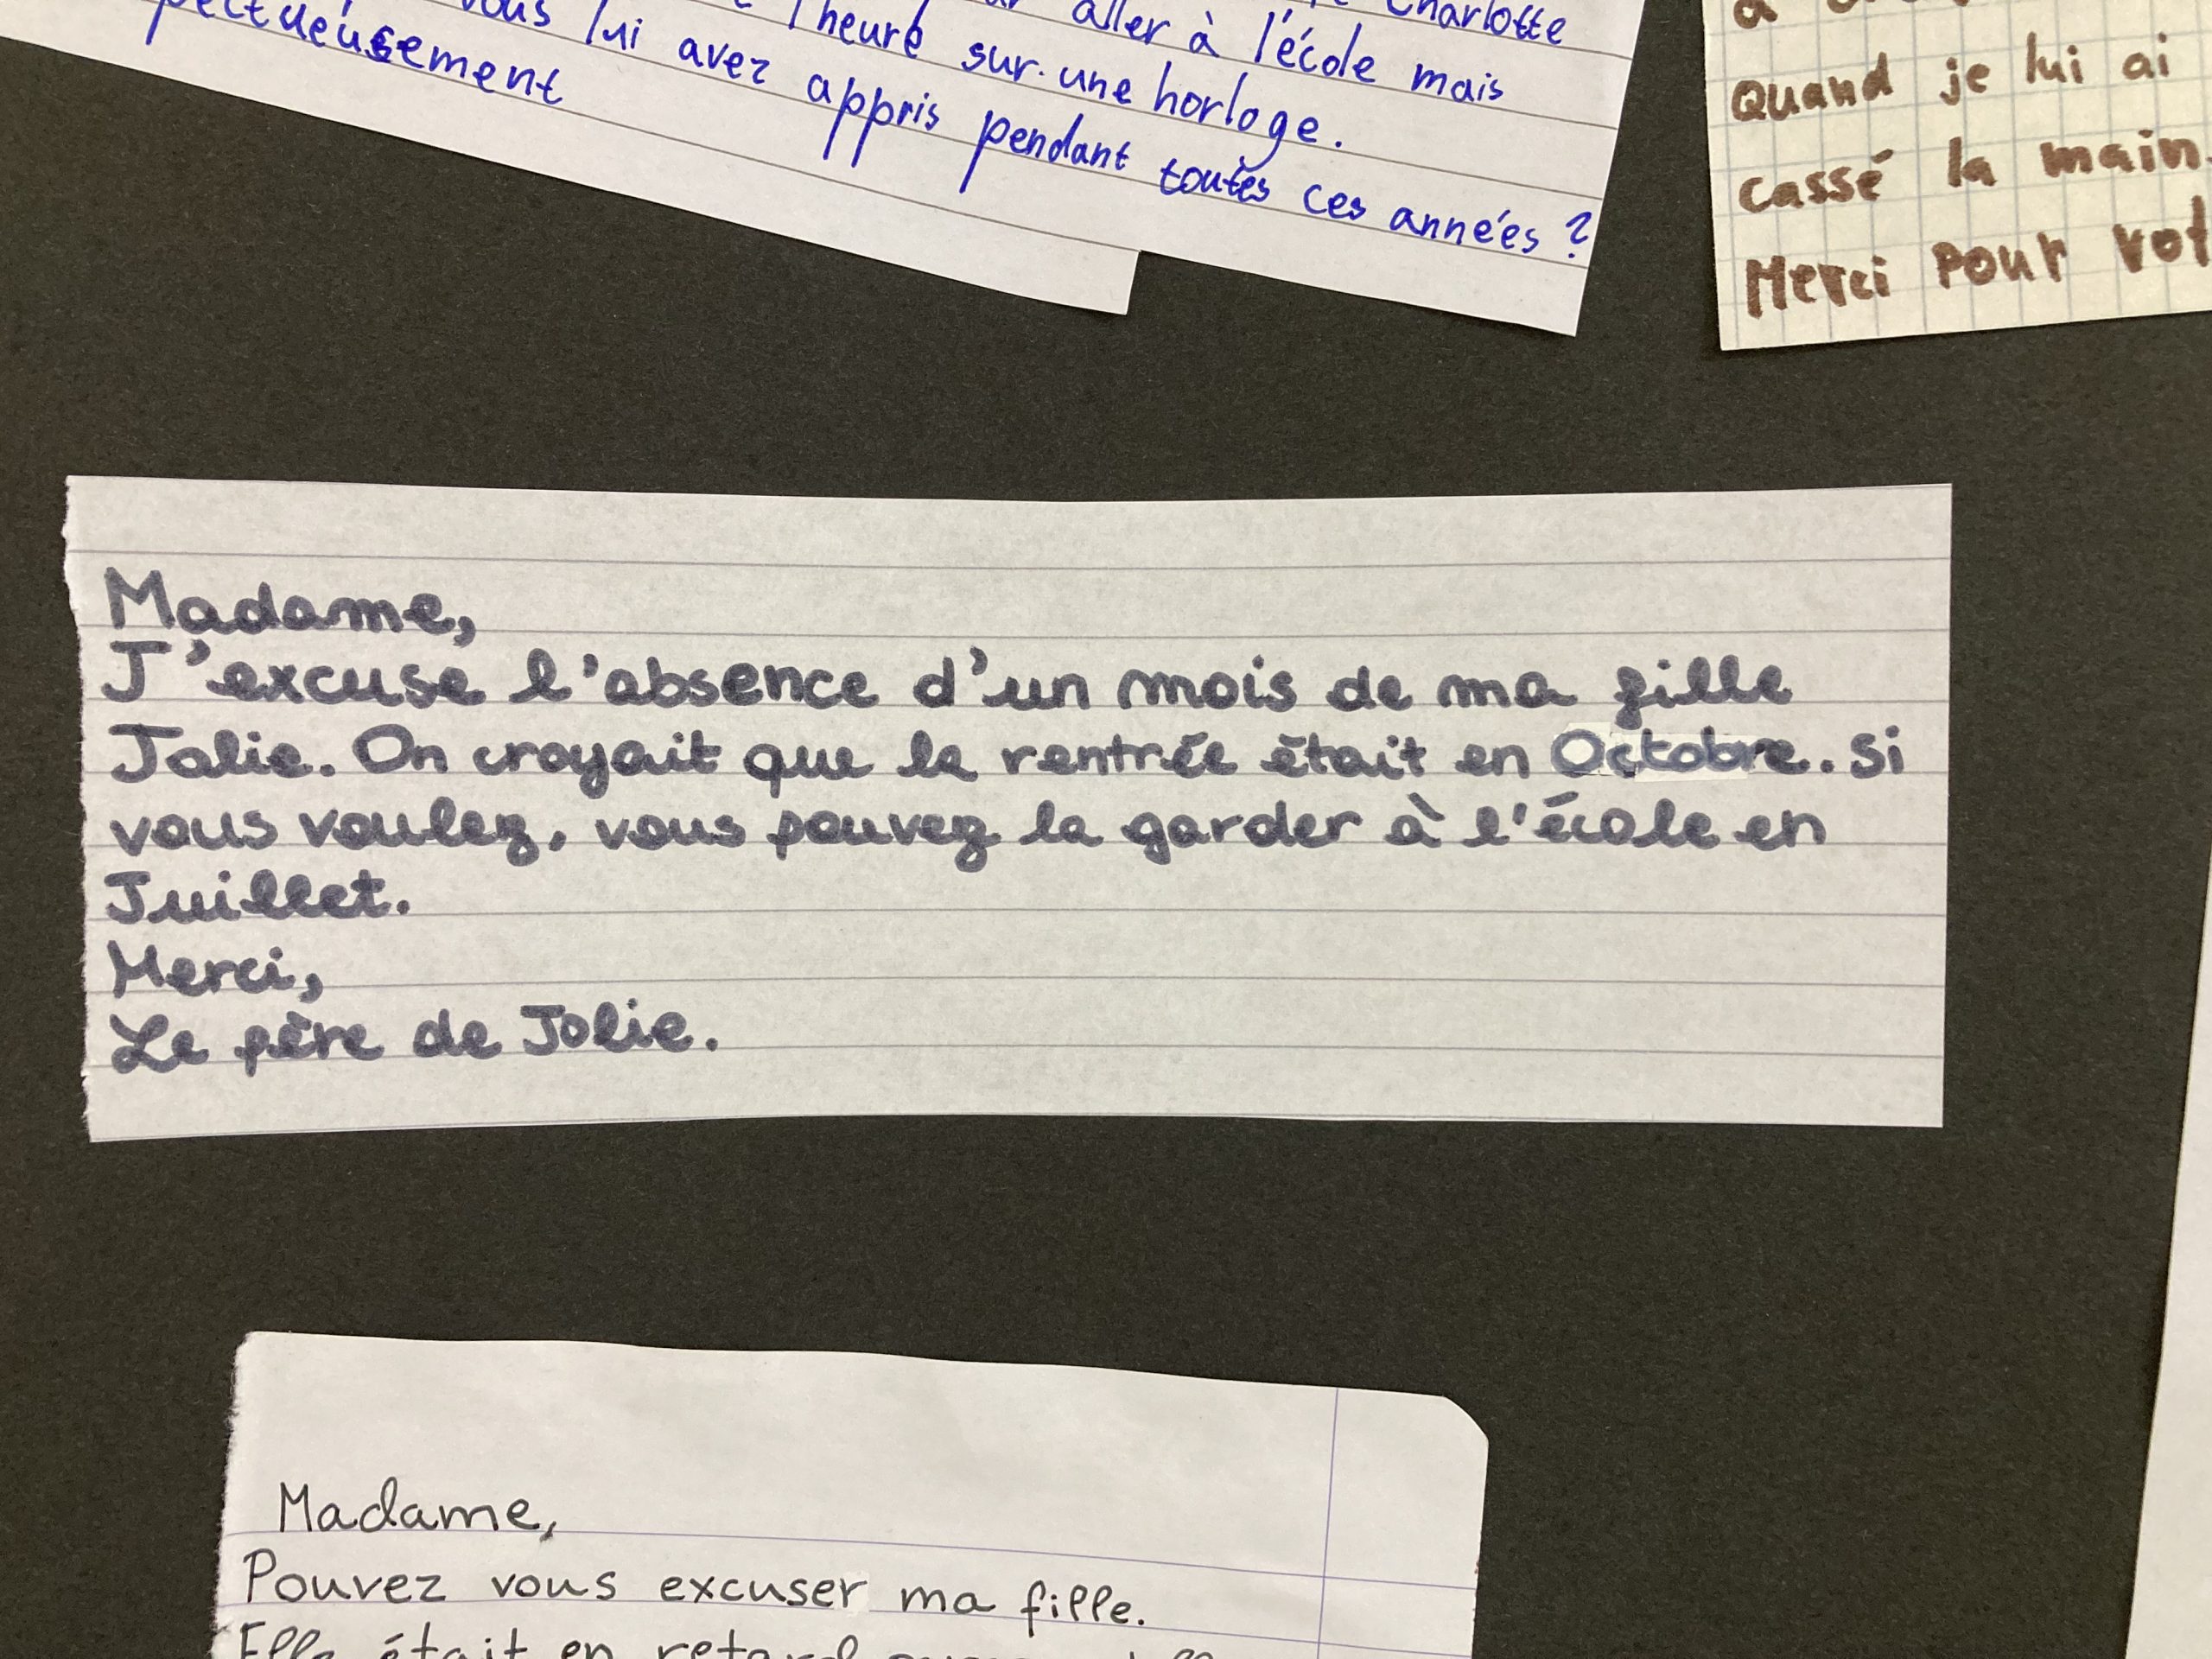 Charlotte
aller à l'école mais
l'heure sur une horloge.
vous lui avez appris pendant toutes ces années ?
pectueusement
Quand je lui ai
cassé la main.
Merci pour
Madame,
J'excuse l'absence d'un mois de ma fille
Jolie. On croyait que la rentrée était en Octobre. Si
vous voulez, vous pouvez la garder à l'école en
Juillet.
Merci,
Le père de Jolie.
Madame,
Pouvez vous excuser ma fille.
Elle était en retard